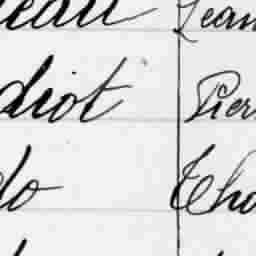 eau Jean
diot Pier
do Tho